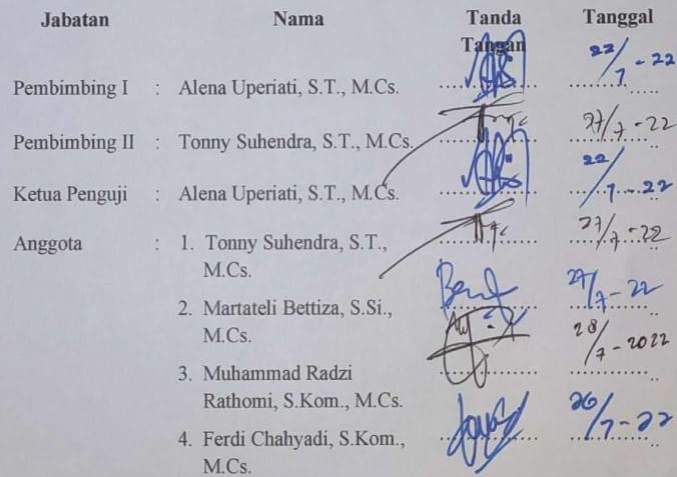 Jabatan Nama Tanda Tangan Tanggal
Pembimbing I : Alena Uperiati, S.T., M.Cs. 22/7-22
Pembimbing II : Tonny Suhendra, S.T., M.Cs. 27/7-22
Ketua Penguji : Alena Uperiati, S.T., M.Cs. 22/7-22
Anggota : 1. Tonny Suhendra, S.T., 27/7-22
M.Cs.
2. Martateli Bettiza, S.Si., 27/7-22
M.Cs. 28/7-2022
3. Muhammad Radzi
Rathomi, S.Kom., M.Cs.
4. Ferdi Chahyadi, S.Kom., 26/7-22
M.Cs.